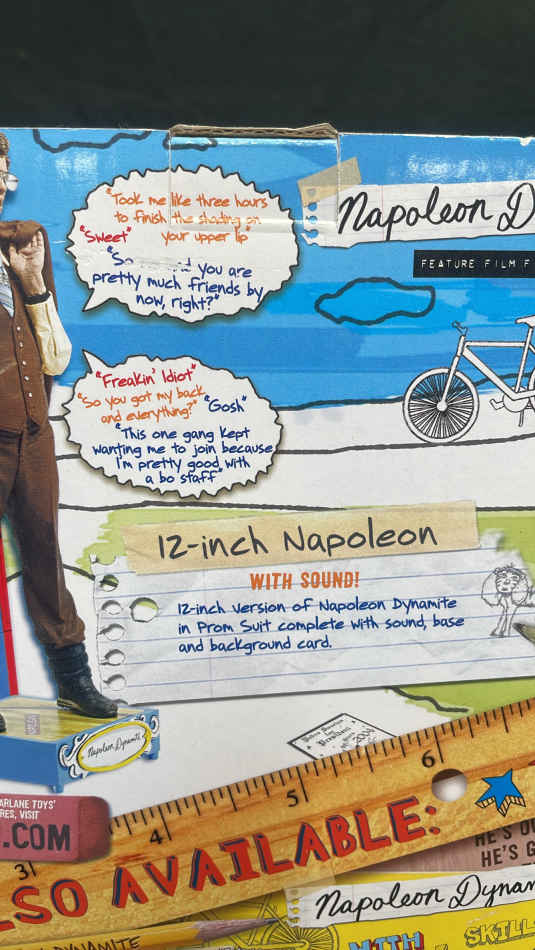 "Took me like three hours
to finish the shading on
"Sweet" your upper lip"
you are
pretty much friends by
now, right?"
Napoleon D
FEATURE FILM F
"Freakin' Idiot"
"So you got my back
and everything?" "Gosh"
"This one gang kept
wanting me to join because
I'm pretty good with
a bo staff"
12-inch Napoleon
WITH SOUND!
12-inch version of Napoleon Dynamite
in Prom Suit complete with sound, base
and background card.
Napoleon Dynamite
ARLANE TOYS'
RES, VISIT
.COM
3 4 5 6
LSO AVAILABLE:
HE'S O
HE'S G
Napoleon Dynam
DYNAMITE
WITH
SKILLS